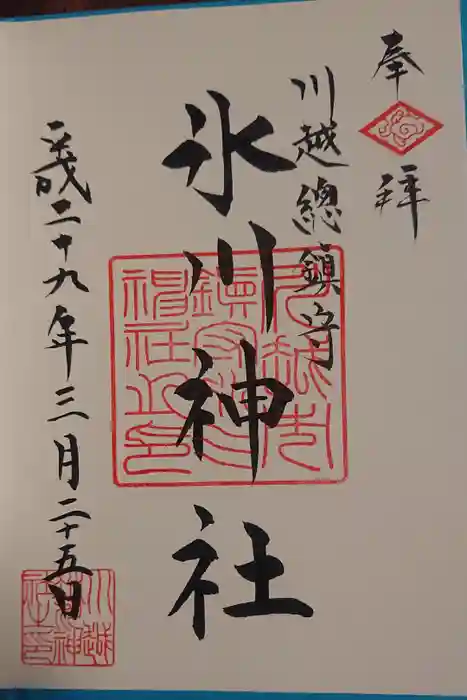 奉拝
川越總鎮守
氷川神社
平成二十九年三月二十五日